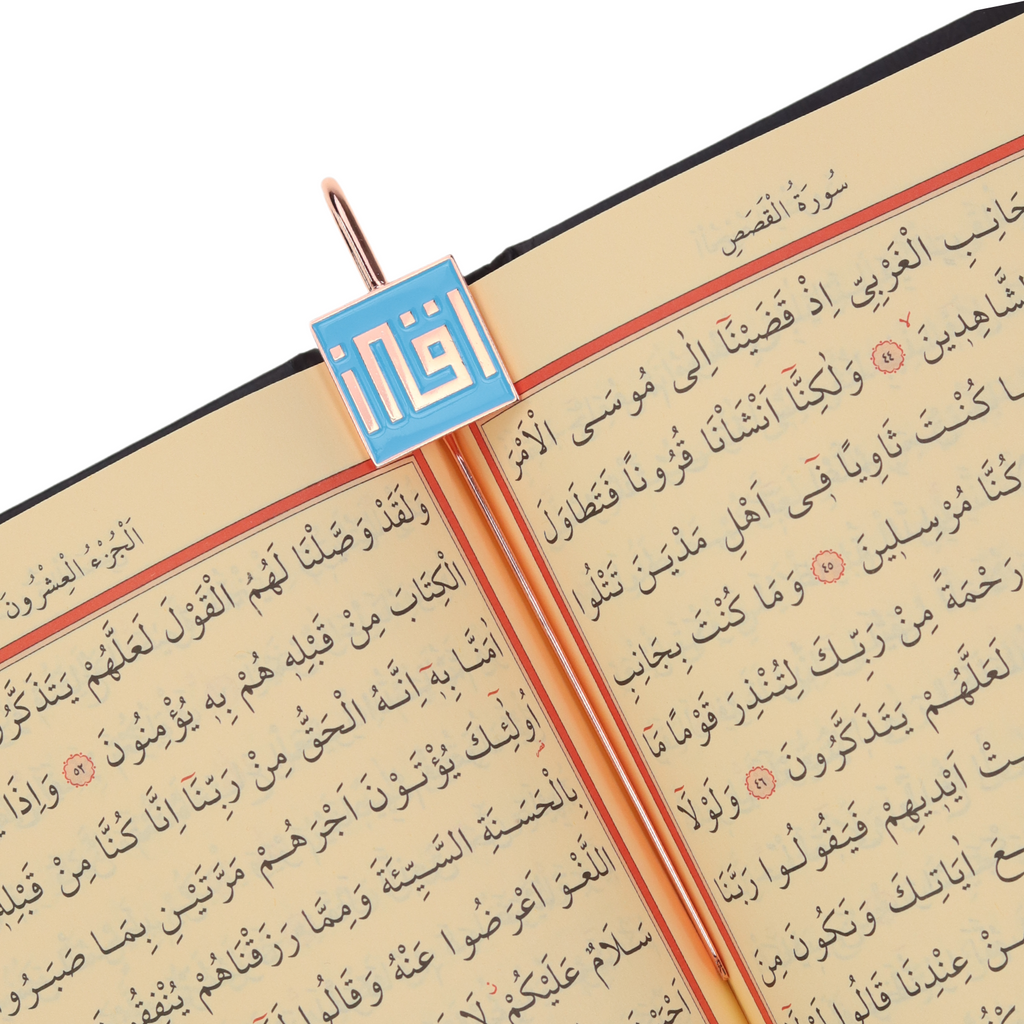 سُورَةُ الْقَصَصِ
جَانِبِ الْغَرْبِيِّ اِذْ قَضَيْنَٓا اِلٰى مُوسَى الْاَمْرَ
الشَّاهِدِينَ ٤٤ وَلٰكِنَّٓا اَنْشَأْنَا قُرُونًا فَتَطَاوَلَ
كُنْتَ ثَاوِيًا فِٓى اَهْلِ مَدْيَنَ تَتْلُوا
كُنَّا مُرْسِلِينَ ٤٥ وَمَا كُنْتَ بِجَانِبِ
رَحْمَةً مِنْ رَبِّكَ لِتُنْذِرَ قَوْمًا مَٓا
لَعَلَّهُمْ يَتَذَكَّرُونَ ٤٦ وَلَوْلَٓا
اَيْدِيهِمْ فَيَقُولُوا رَبَّنَا
اٰيَاتِكَ وَنَكُونَ مِنَ
عِنْدِنَا قَالُوا لَوْلَٓا
اَلْجُزْءُ الْعِشْرُونَ
وَلَقَدْ وَصَّلْنَا لَهُمُ الْقَوْلَ لَعَلَّهُمْ يَتَذَكَّرُونَ
الْكِتَابَ مِنْ قَبْلِهٖ هُمْ بِهٖ يُؤْمِنُونَ ٥٢ وَاِذَا
اٰمَنَّا بِهٖٓ اِنَّهُ الْحَقُّ مِنْ رَبِّنَٓا اِنَّا كُنَّا مِنْ قَبْلِهٖ
اُو۬لٰٓئِكَ يُؤْتَوْنَ اَجْرَهُمْ مَرَّتَيْنِ بِمَا صَبَرُوا
بِالْحَسَنَةِ السَّيِّئَةَ وَمِمَّا رَزَقْنَاهُمْ يُنْفِقُونَ
اللَّغْوَ اَعْرَضُوا عَنْهُ وَقَالُوا
سَلَامٌ عَلَيْكُمْ لَا